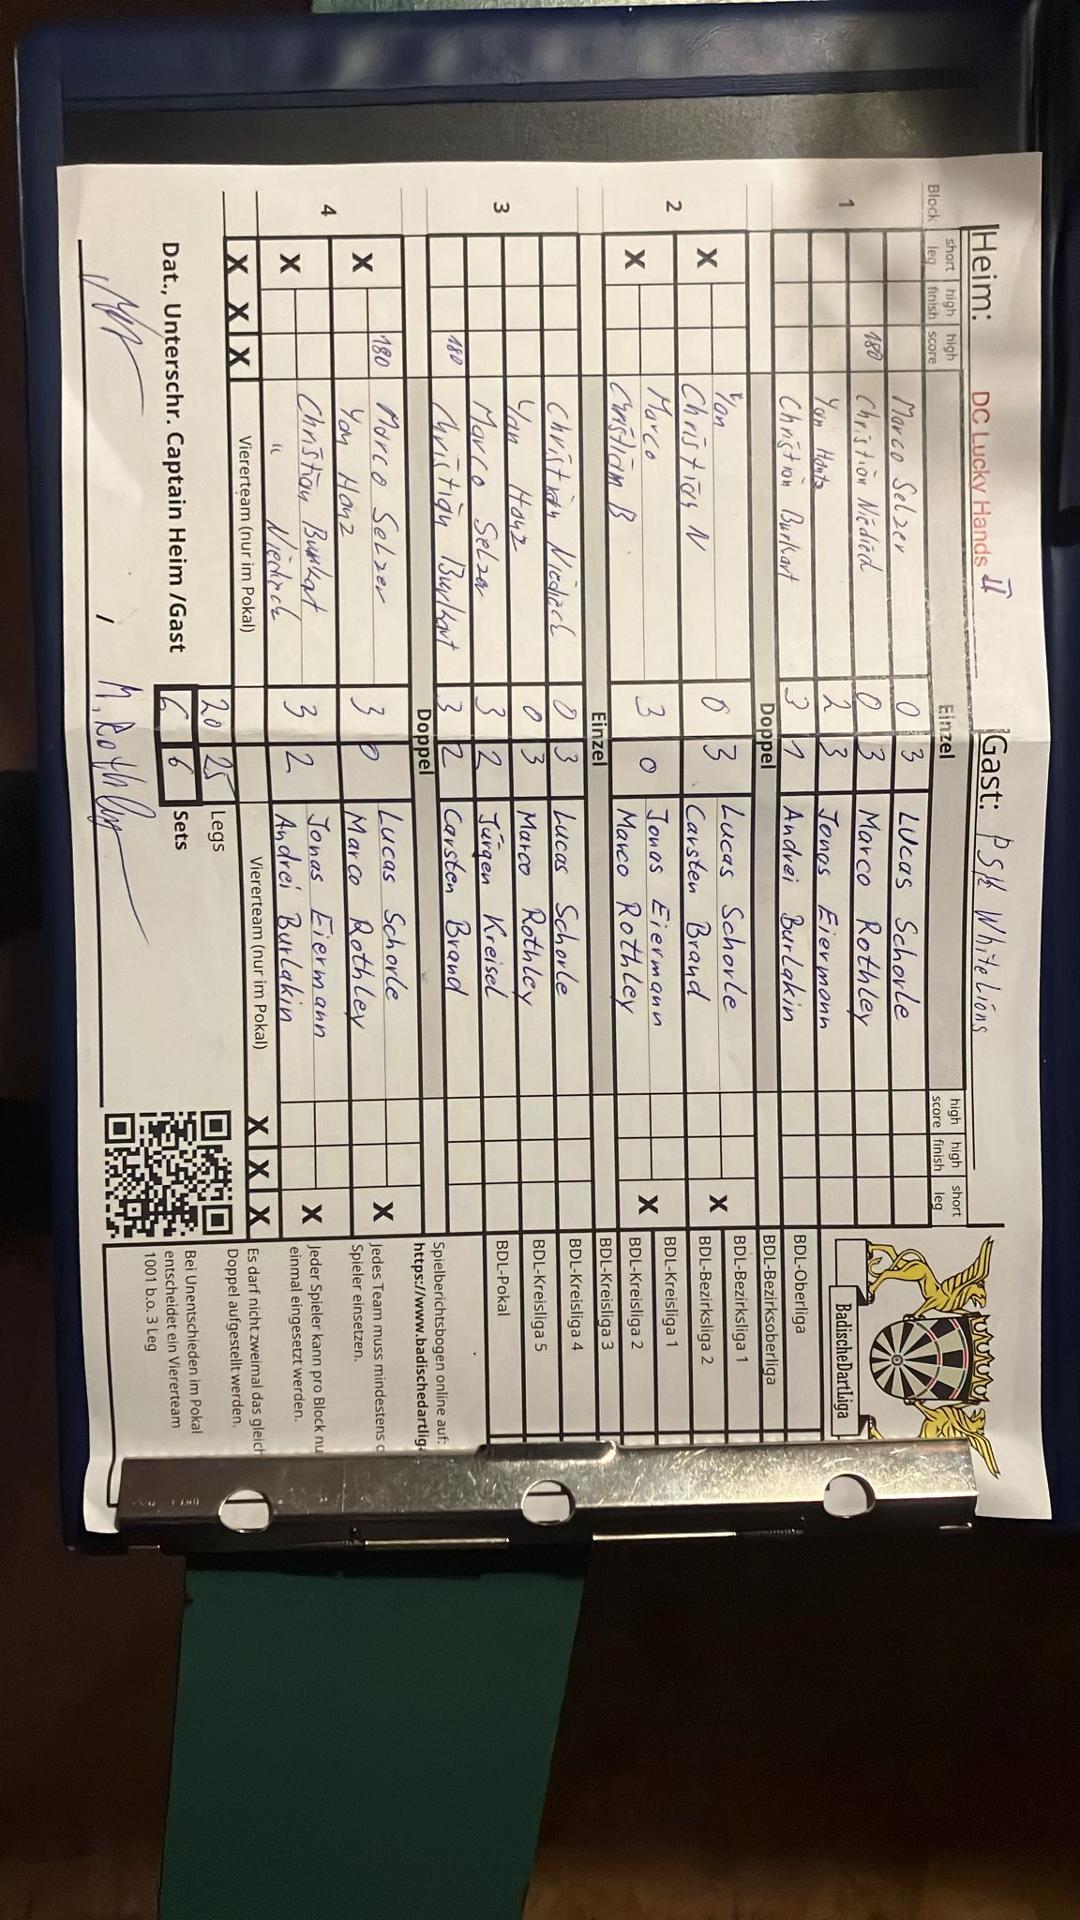 Heim: DC Lucky Hands II Gast: PSK White Lions
Block short leg high finish high score Einzel high score high finish short leg
1
Marco Selzer 0 3 Lucas Schorle
180 Christian Niedied 0 3 Marco Rothley
Yan Hantz 2 3 Jonas Eiermann
Christian Burkart 3 1 Andrei Burlakin
Doppel
2
X Yan 0 3 Lucas Schorle X
Christian N Carsten Brand
X Marco 3 0 Jonas Eiermann X
Christian B Marco Rothley
Einzel
3
Christian Niedied 0 3 Lucas Schorle
Yan Hanz 0 3 Marco Rothley
Marco Selzer 3 2 Jürgen Kreisel
180 Christian Burkart 3 2 Carsten Brand
Doppel
4
X 180 Marco Selzer 3 0 Lucas Schorle X
Yan Hanz Marco Rothley
X Christian Burkart 3 2 Jonas Eiermann X
" Andrei Burlakin
X X X Viererteam (nur im Pokal) Viererteam (nur im Pokal) X X X
20 25 Legs
6 6 Sets
Dat., Unterschr. Captain Heim /Gast
/ M. Rothley
BadischeDartLiga
BDL-Oberliga
BDL-Bezirksoberliga
BDL-Bezirksliga 1
BDL-Bezirksliga 2
BDL-Kreisliga 1
BDL-Kreisliga 2
BDL-Kreisliga 3
BDL-Kreisliga 4
BDL-Kreisliga 5
BDL-Pokal
Spielberichtsbogen online auf:
https://www.badischedartlig
Jedes Team muss mindestens
Spieler einsetzen.
Jeder Spieler kann pro Block nu
einmal eingesetzt werden.
Es darf nicht zweimal das gleich
Doppel aufgestellt werden.
Bei Unentschieden im Pokal
entscheidet ein Viererteam
1001 b.o. 3 Leg